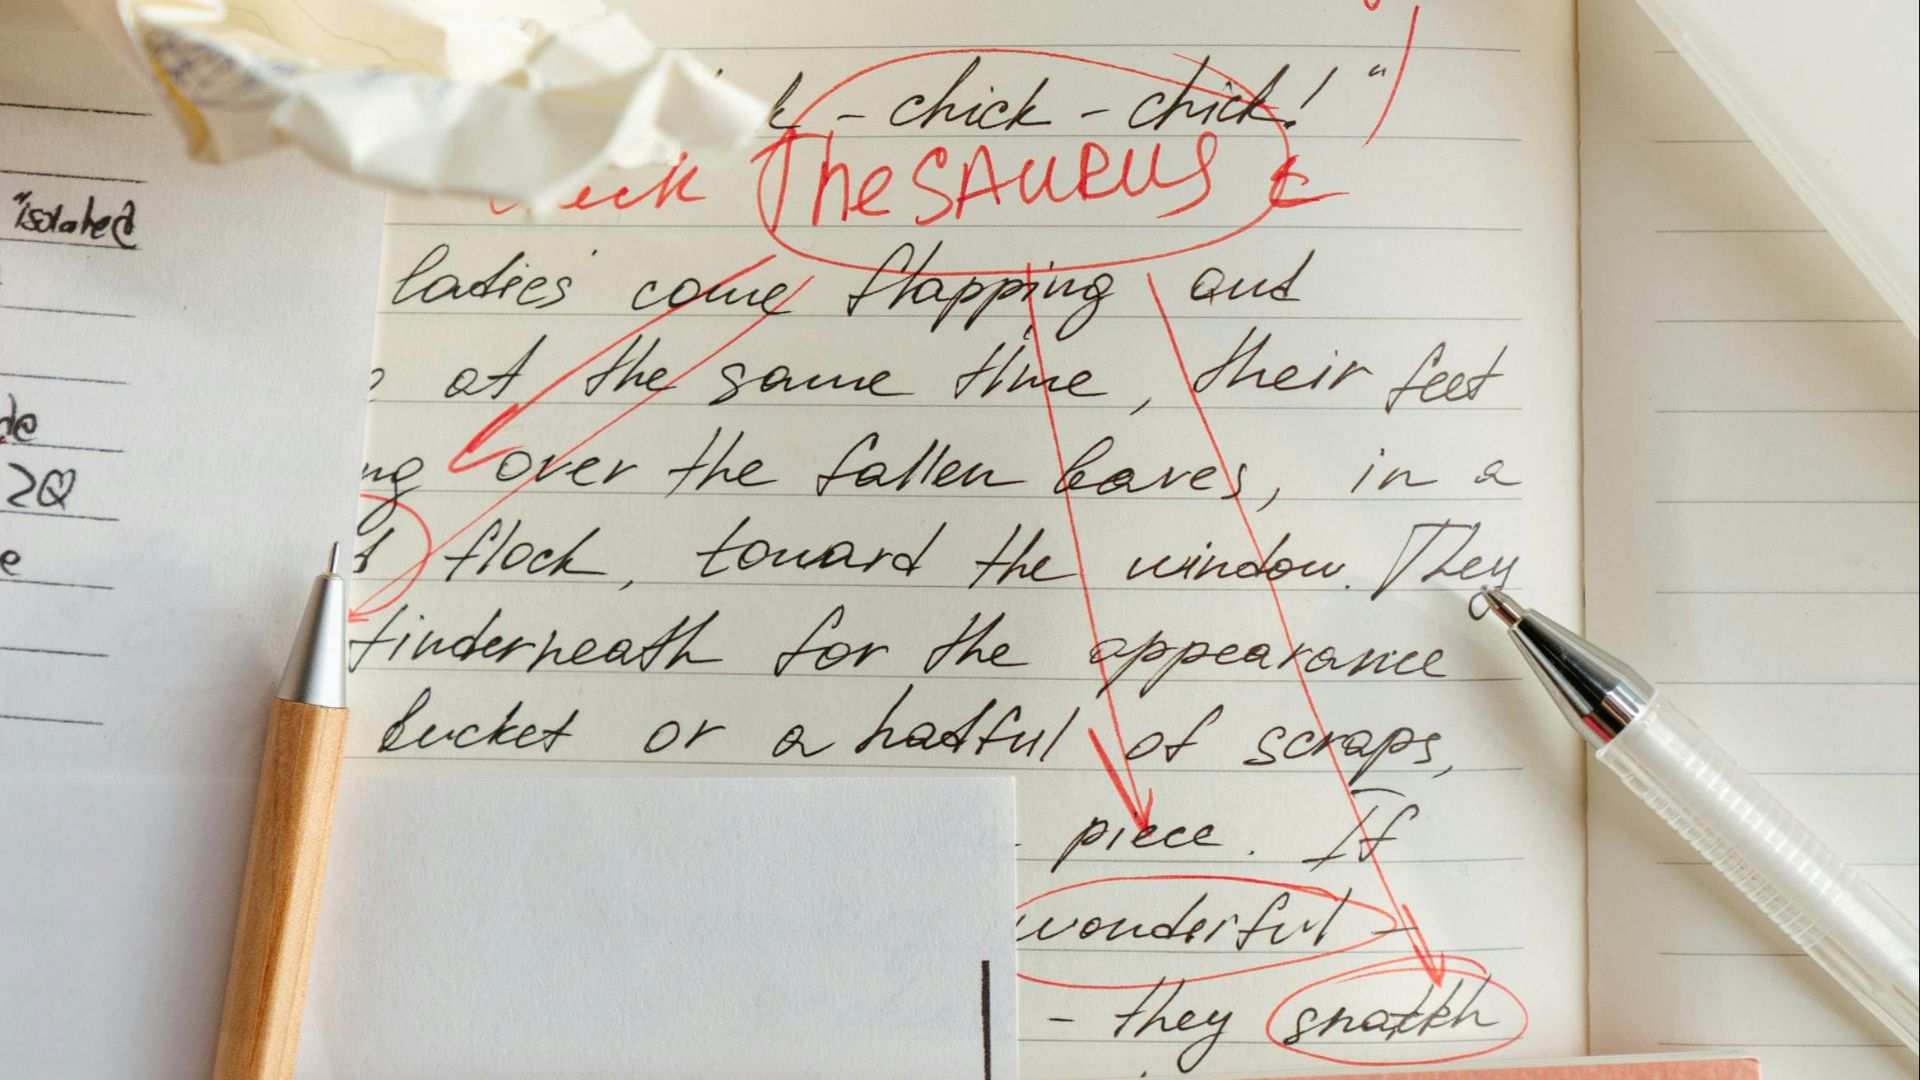 "isolated
de
2Q
e
k - chick - chick!"
eck Thesaurus
ladies' come flapping out
at the same time, their feet
ng over the fallen leaves, in a
flock, toward the window. They
finderneath for the appearance
bucket or a hatful of scraps,
piece. If
wonderful -
- they snattkh